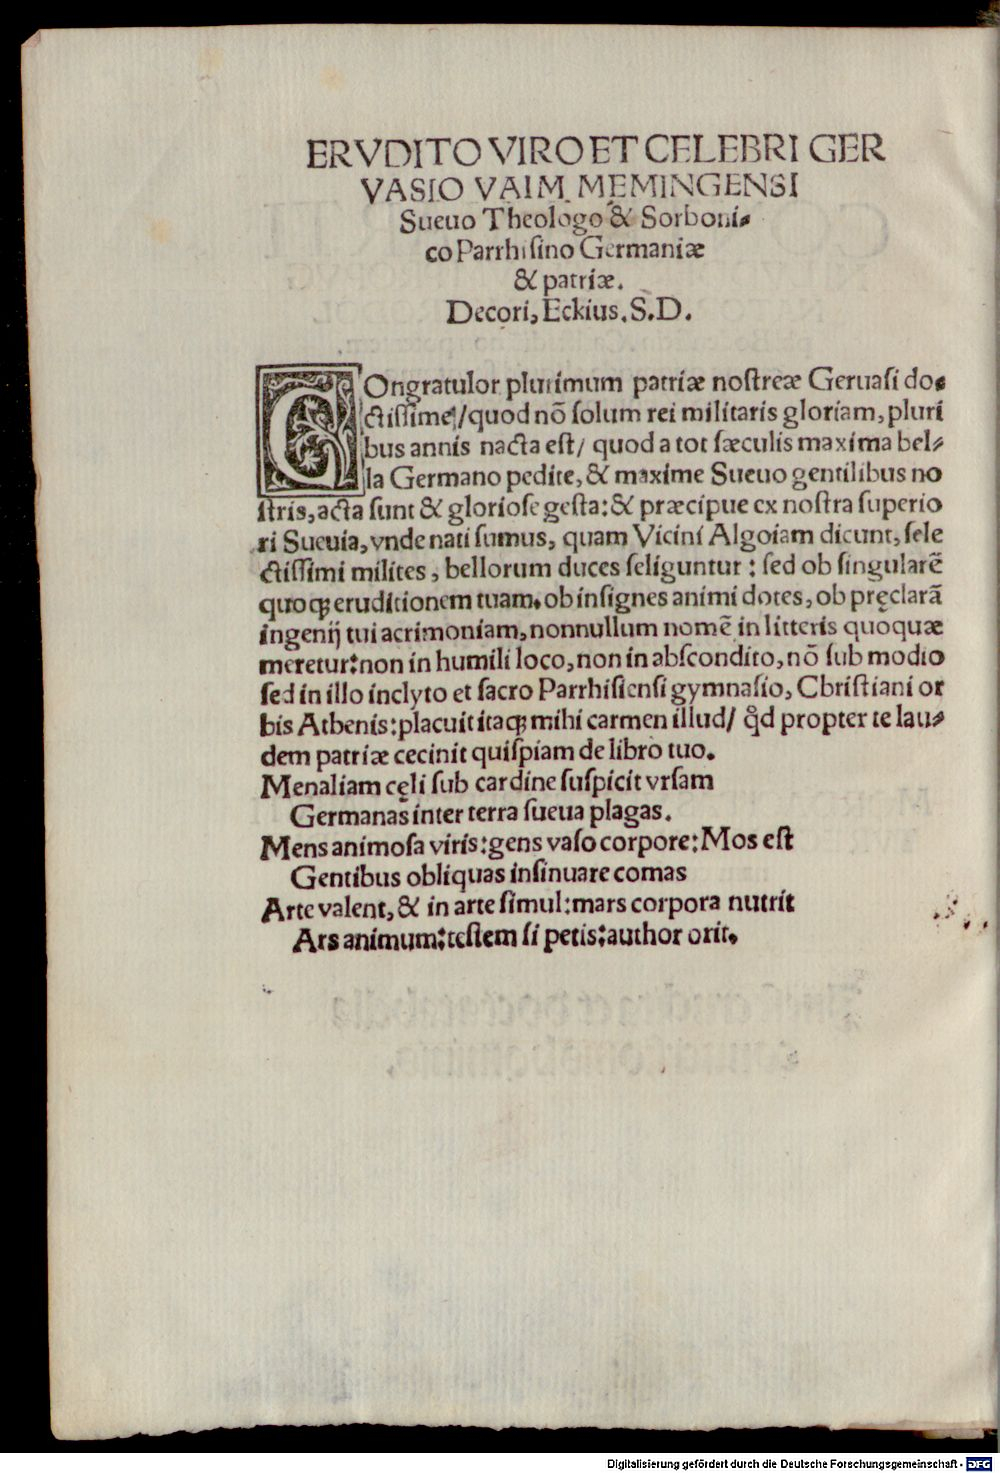 ERVDITO VIRO ET CELEBRI GER
VASIO VAIM MEMINGENSI
Sueuo Theologo & Sorboni⸗
co Parrhisino Germaniæ
& patriæ.
Decori, Eckius. S. D.
COngratulor plurimum patriæ nostreæ Geruasi do⸗
ctissime,/quod nõ solum rei militaris gloriam, pluri
bus annis nacta est/ quod a tot sæculis maxima bel⸗
la Germano pedite, & maxime Sueuo gentilibus no
stris, acta sunt & gloriose gesta: & præcipue ex nostra superio
ri Sueuia, vnde nati sumus, quam Vicini Algoiam dicunt, sele
ctissimi milites, bellorum duces seliguntur: sed ob singularẽ
quoqꝫ eruditionem tuam. ob insignes animi dotes, ob pręclarã
ingenij tui acrimoniam, nonnullum nomẽ in litteris quoquæ
meretur: non in humili loco, non in abscondito, nõ sub modio
sed in illo inclyto et sacro Parrhisiensi gymnasio, Christiani or
bis Athenis: placuit itaqꝫ mihi carmen illud/ qd̓ propter te lau⸗
dem patriæ cecinit quispiam de libro tuo.
Menaliam cęli sub cardine suspicit vrsam
Germanas inter terra sueua plagas.
Mens animosa viris: gens vaso corpore: Mos est
Gentibus obliquas insinuare comas
Arte valent, & in arte simul: mars corpora nutrit
Ars animum: testem si petis: author orit.
Digitalisierung gefördert durch die Deutsche Forschungsgemeinschaft - DFG